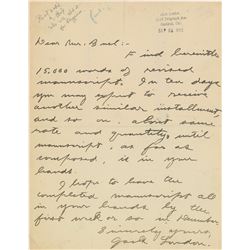 Dear Mr. Buel:-
Find herewith
15,000 words of revised
manuscript. In ten days
you may expect to receive
another similar installment,
and so on, about same
rate and quantity, until
manuscript, as far as
composed, is in your
hands.
I hope to have the
completed manuscript all
in your hands by the
first week or so in
Sincerely yours,
Jack London.